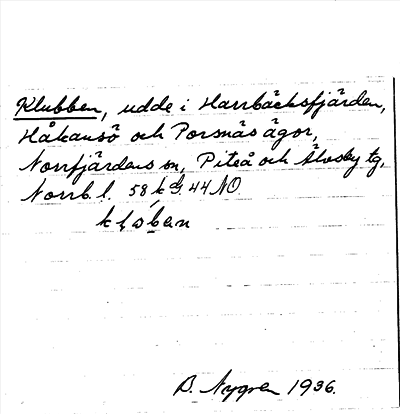 Klubben, udde i Harrbäcksfjärden,
Håkansö och Porsnäs ägor,
Norrfjärdens sn, Piteå och Älvsby tg,
Norrb. l. 58 k G. 44 NO
B. Nygren 1936.